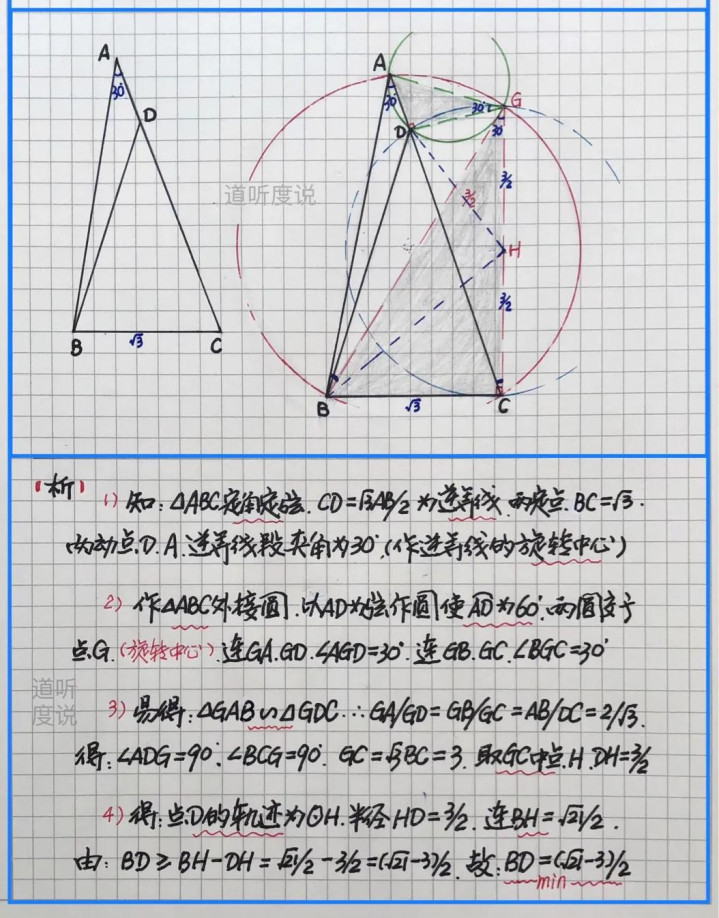 A
30°
D
B
√3
C
A
30°
D
30°
G
30°
3/2
3/2
H
3/2
B
√3
C
道听度说
【析】 1) 知:△ABC定角定弦. CD=√3AB/2 为逆等线. 两定点. BC=√3.
两动点.D.A.逆等线段夹角为30°.(作逆等线的旋转中心)
2) 作△ABC外接圆.以AD为弦作圆使AD为60°.两圆交于
点G.(旋转中心).连GA.GD.∠AGD=30°.连GB.GC.∠BGC=30°
道听
度说
3) 易得:△GAB∽△GDC ∴GA/GD=GB/GC=AB/DC=2/√3.
得:∠ADG=90°.∠BCG=90°. GC=√3BC=3. 取GC中点.H.DH=3/2
4) 得:点D的轨迹为⊙H.半径HD=3/2. 连BH=√21/2.
由: BD≥BH-DH=√21/2-3/2=(√21-3)/2. 故:BD=(√21-3)/2
min